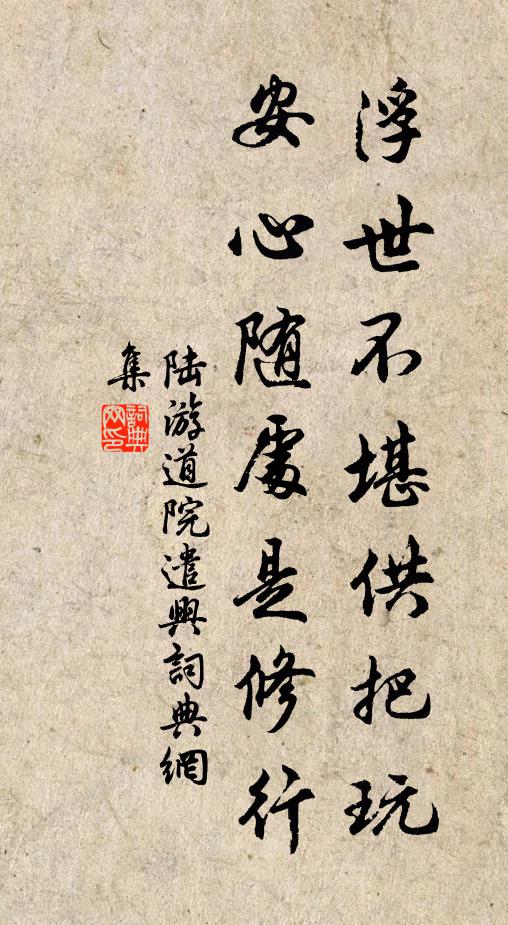 浮世不堪供把玩
安心随處是修行
陆游道院遣興詞典網
集
詞典
网印